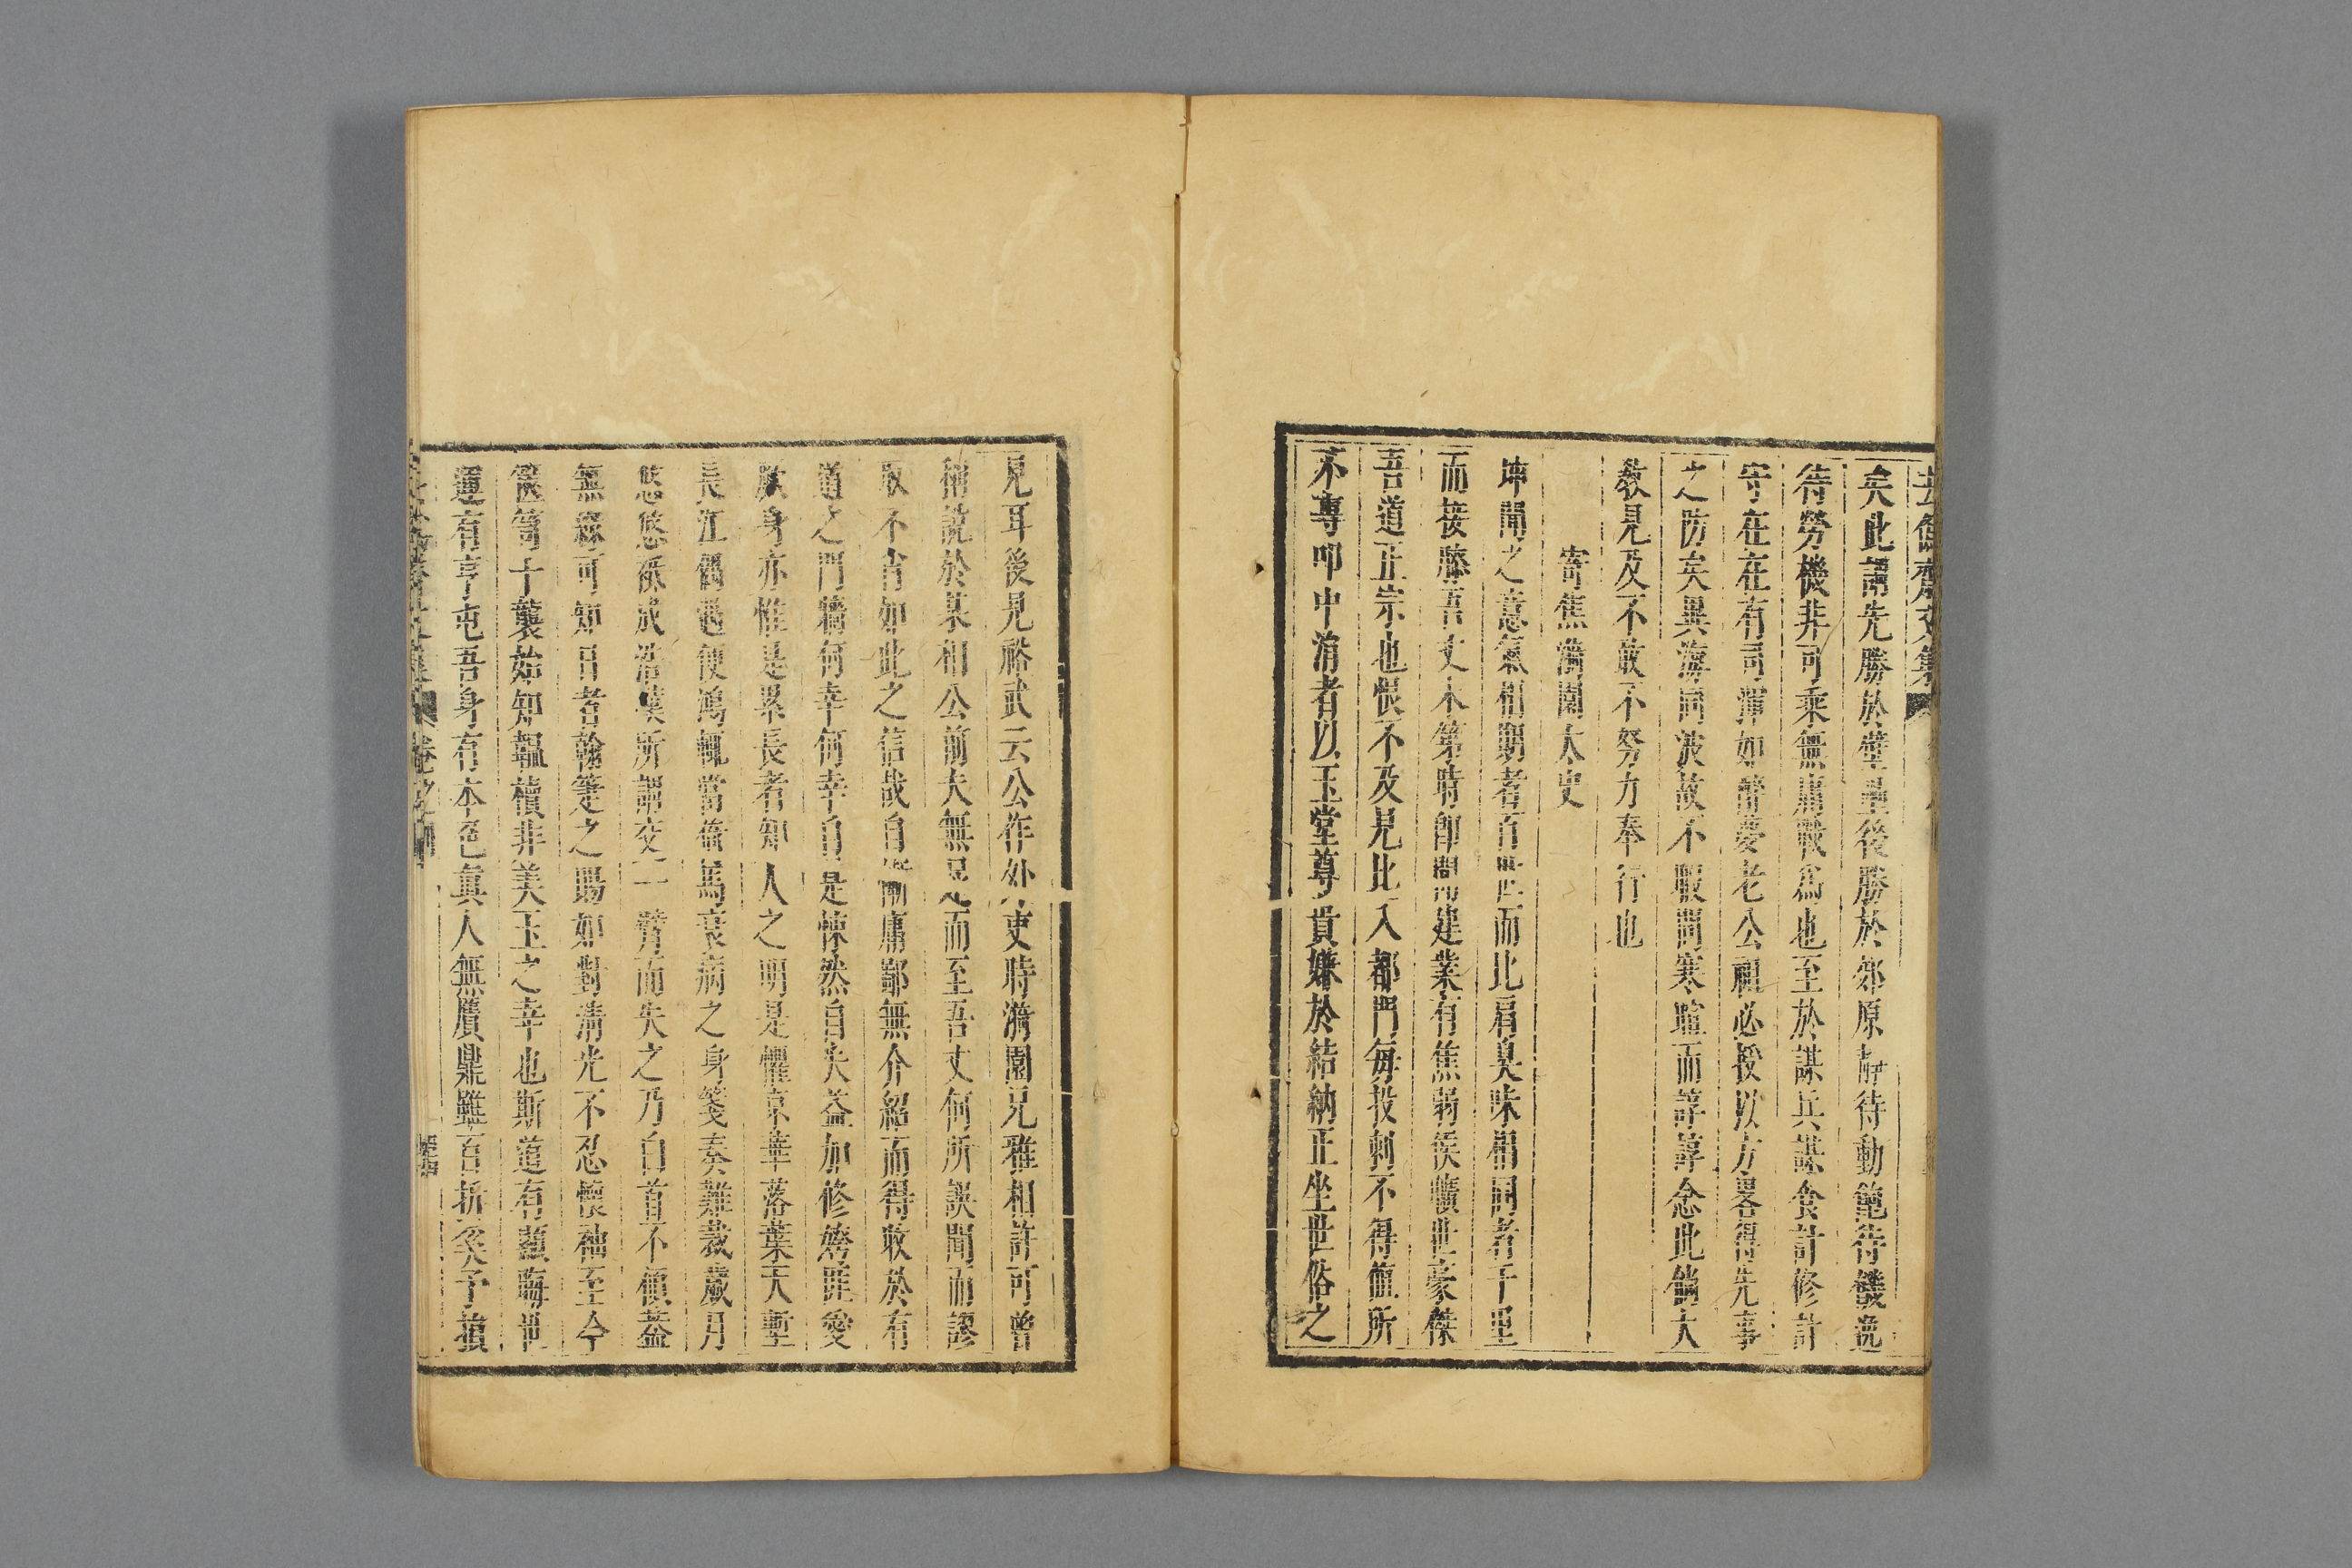 矣此謂先勝於壁壘後勝於郊原靜待動飽待饑逸
待勞機非可乘無庸戰爲也至於謀兵謀食計修計
守在在有司渾如醉夢老公祖必授以方畧得先事
之防矣異海同波故不暇問寒暄而諄諄念此倘大
敎見及不敢不努力奉行也
寄焦漪園太史
坤聞之意氣相期者百世而比肩臭味相同者千里
而接膝吾丈未第時卽聞建業有焦弱侯曠世豪傑
吾道正宗也恨不及見比入都門每投刺不得值所
不專叩中涓者以玉堂尊貴嫌於結納正坐世俗之
見耳後見裕武云公作外吏時漪園兄雅相許可曾
稱說於某相公前夫無足而至吾丈何所誤聞而謬
取不肖如此之信哉自慚庸鄙無介紹而得收於有
道之門牆何幸何幸自是悚然自失益加修嫮匪愛
厥身亦惟是累長者知人之明是懼京華落葉天塹
長江偶遇便鴻輒當倚馬衰病之身箋奏難裁歲月
悠悠祗成浩漠所謂交一臂而失之乃白首不傾蓋
無緣可知日者翰箑之賜如對清光不忍懷袖至今
篋笥十襲始知韞櫝非美玉之幸也斯道有顯晦世
運有亨屯吾身有本色眞人無贋鼎雖百折奚予損